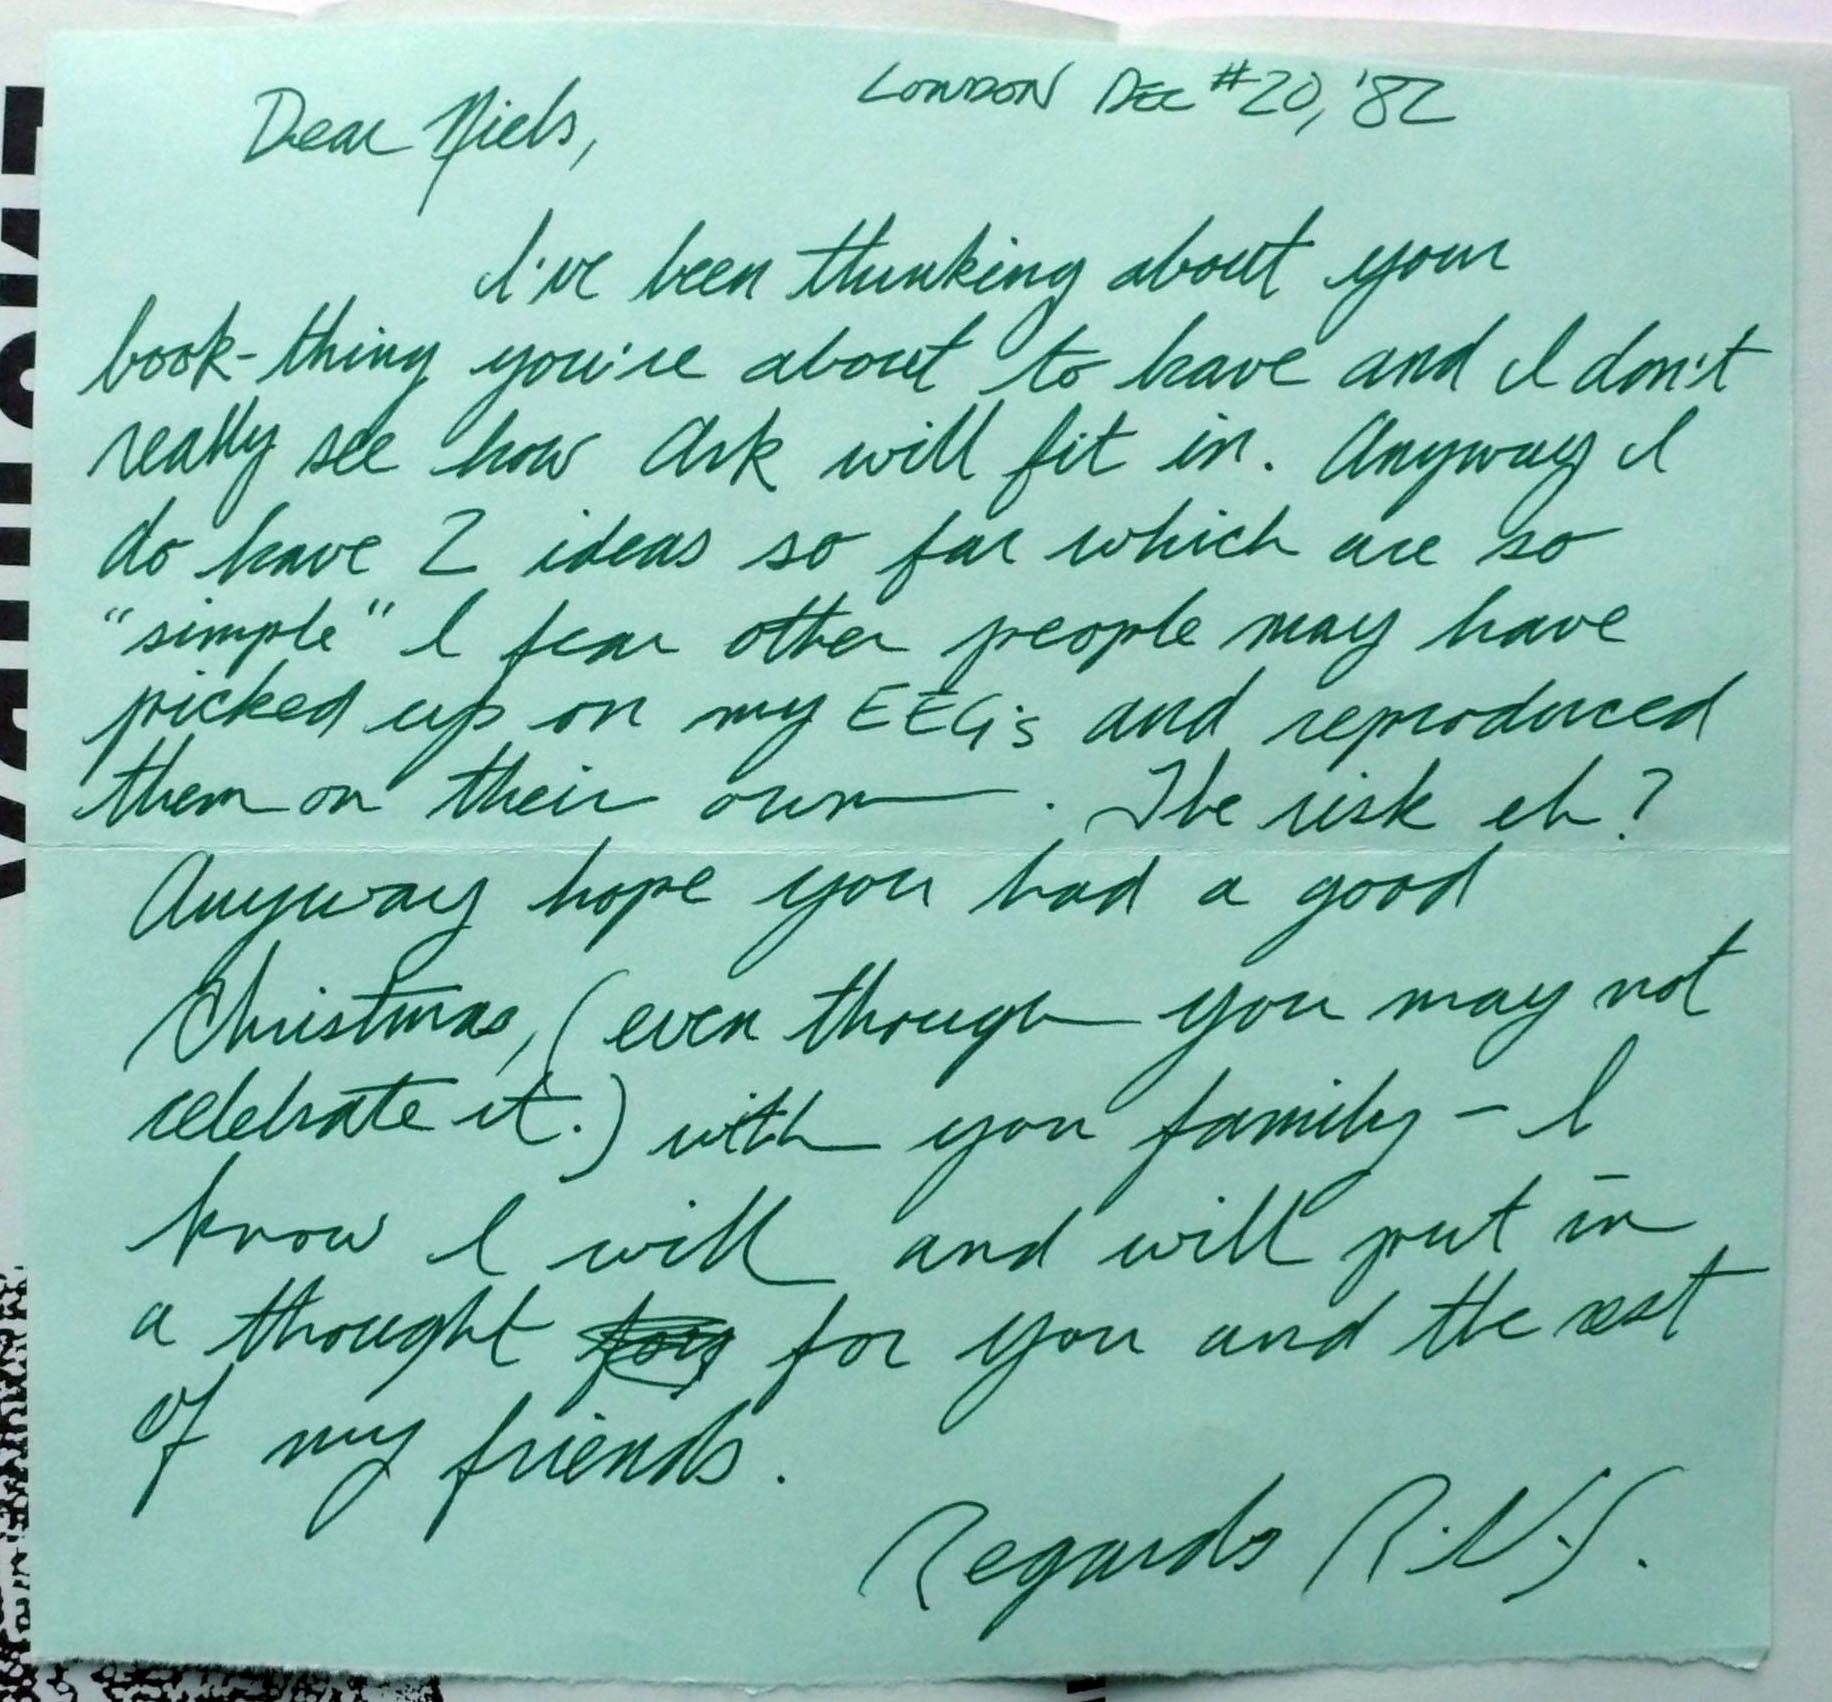 LONDON DEC #20, '82
Dear Niels,
I've been thinking about your
book-thing you're about to have and I don't
really see how Ark will fit in. Anyway I
do have 2 ideas so far which are so
"simple" I fear other people may have
picked up on my EEG's and reproduced
them on their own. The risk eh?
Anyway hope you had a good
Christmas, (even though you may not
celebrate it.) with you family - I
know I will and will put in
a thought for you and the rest
of my friends.
Regards R.N.S.